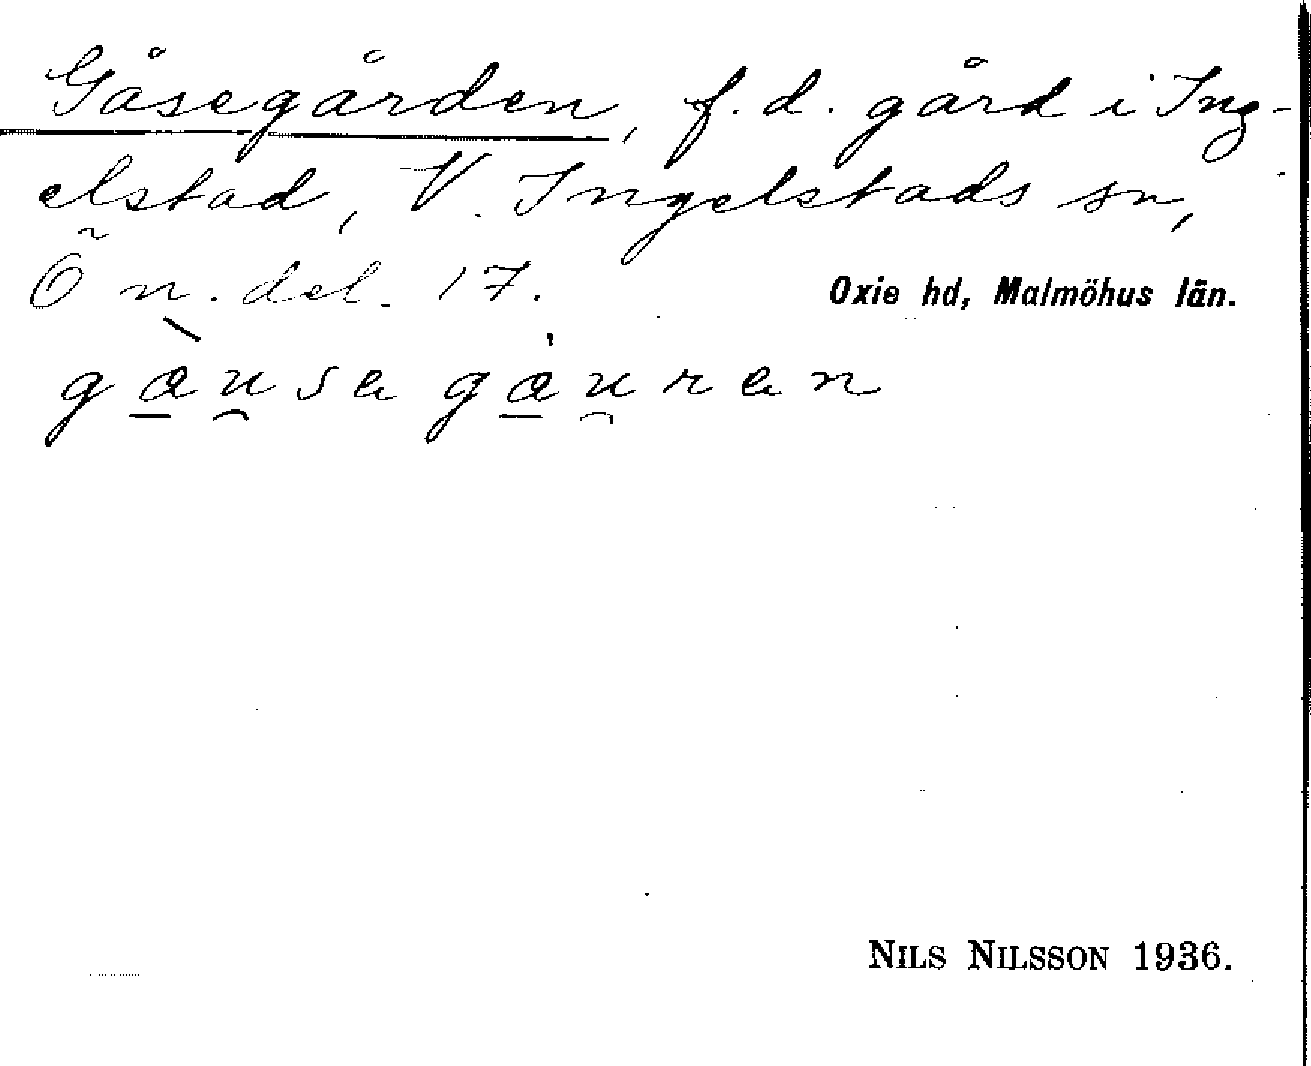 Gåsegården, f. d. gård i Ing-
elstad, V. Ingelstads sn,
Ö n. del. 17. Oxie hd, Malmöhus län.
gæ̱̀u̯sa gæ̱̍u̯ran
NILS NILSSON 1936.